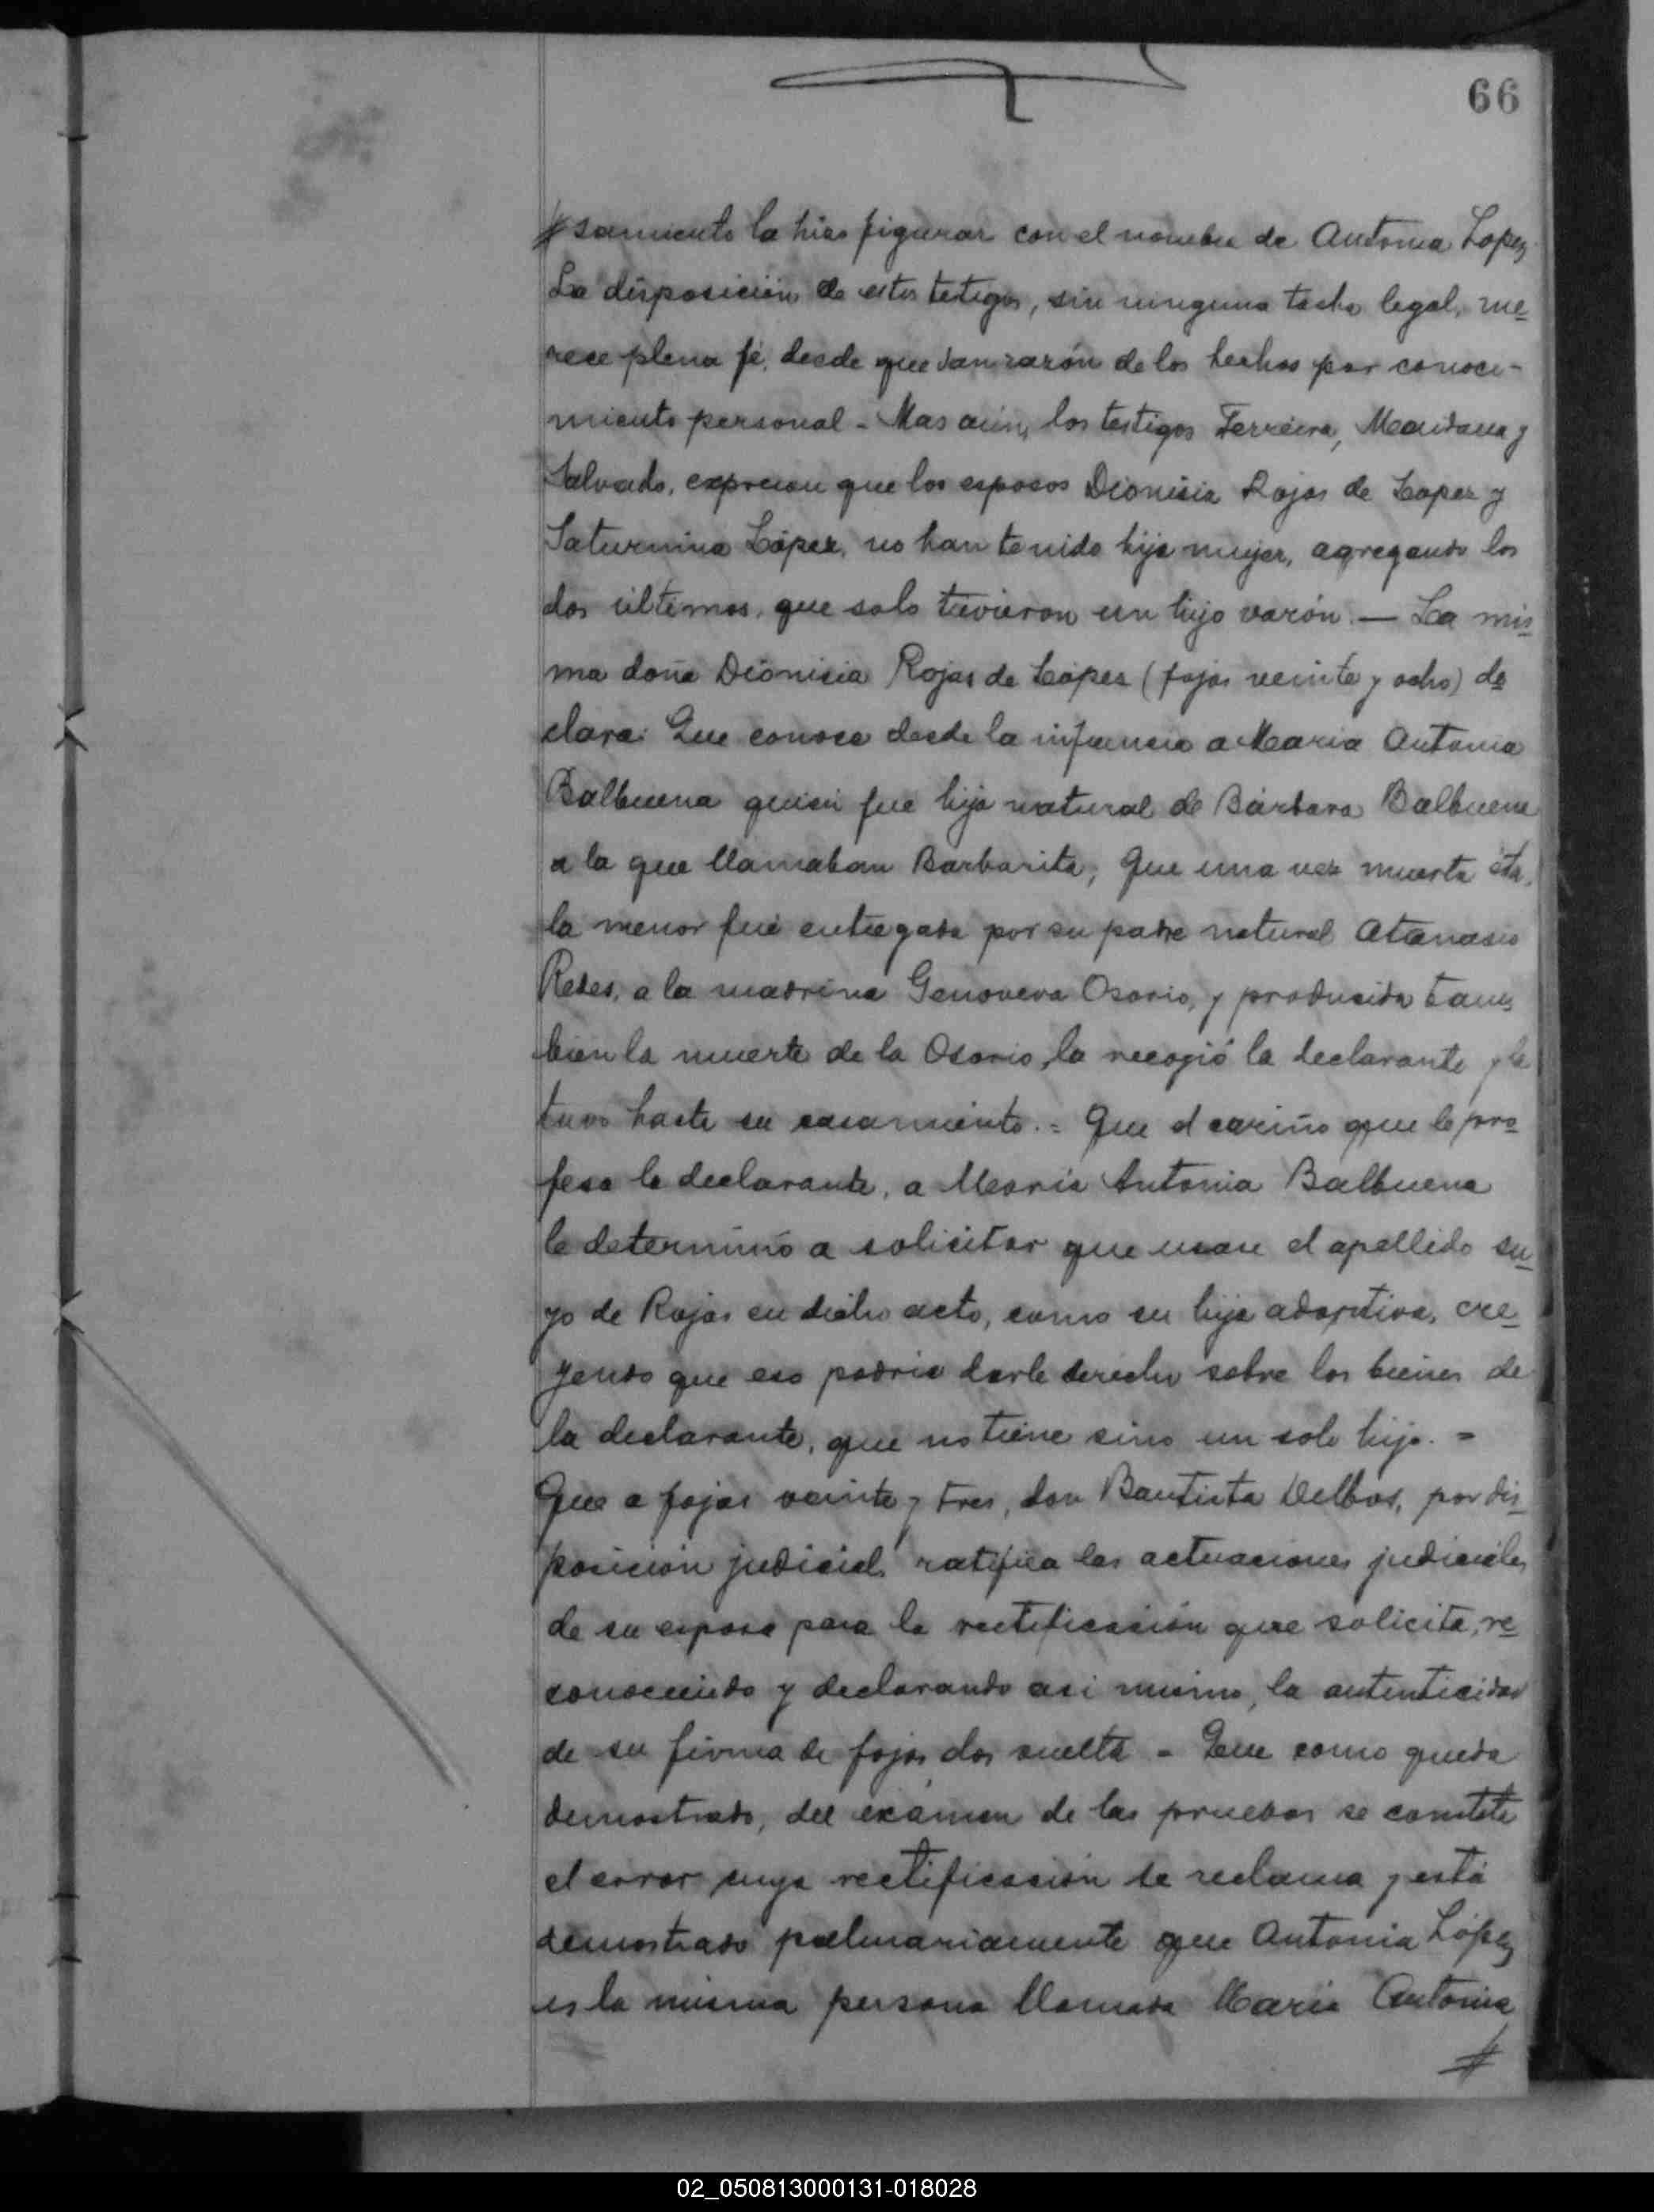 66
# samiento la hizo figurar con el nombre de Antonia Lopez
La disposición de estos testigos, sin ninguna tacha legal, me
rece plena fé, desde que dan razón de los hechos por conoci-
miento personal - Mas aún, los testigos Ferreira, Maidana y
Salvado, expresan que los esposos Dionisia Rojas de Lopez y
Saturnino López, no han tenido hija mujer, agregando los
dos últimos, que solo tuvieron un hijo varón. — La mis
ma doña Dionisia Rojas de López (fojas veinte y ocho) de
clara: Que conoce desde la infancia a Maria Antonia
Balbuena quien fue hija natural de Bárbara Balbuena
a la que llamaban Barbarita; Que una vez muerta ésta,
la menor fué entregada por su padre natural Atanasio
Redes, a la madrina Genoveva Osorio, y producida tam
bien la muerte de la Osorio, la recogió la declarante y la
tuvo hasta su casamiento. = Que el cariño que le pro
fesa la declarante, a Maria Antonia Balbuena
le determinó a solicitar que usase el apellido su
yo de Rojas en dicho acto, como su hija adoptiva, cre
yendo que eso podria darle derecho sobre los bienes de
la declarante, que no tiene sino un solo hijo. =
Que a fojas veinte y tres, don Bautista Delbos, por dis
posición judicial, ratifica las actuaciones judiciales
de su esposa para la rectificación que solicita, re
conociendo y declarando asi mismo, la autenticidad
de su firma de fojas dos vuelta - Que como queda
demostrado, del exámen de las pruebas se constata
el error cuya rectificación se reclama y está
demostrado palmariamente que Antonia López
es la misma persona llamada Maria Antonia
#
02_050813000131-018028